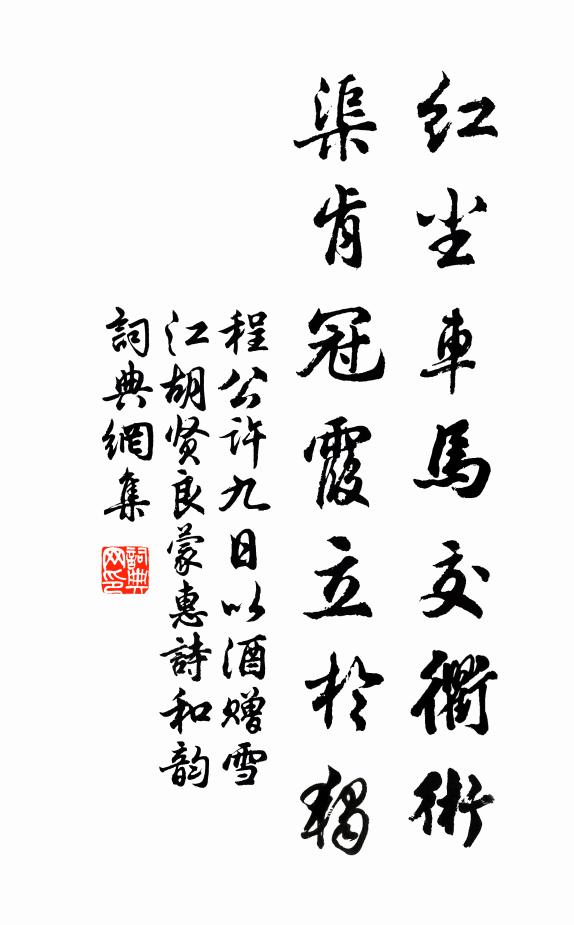 红尘車馬交衢術
渠肯冠霞立於獨
程公許九日以酒贈雪
江胡贤良蒙惠詩和韵
詞典網集
詞典网印